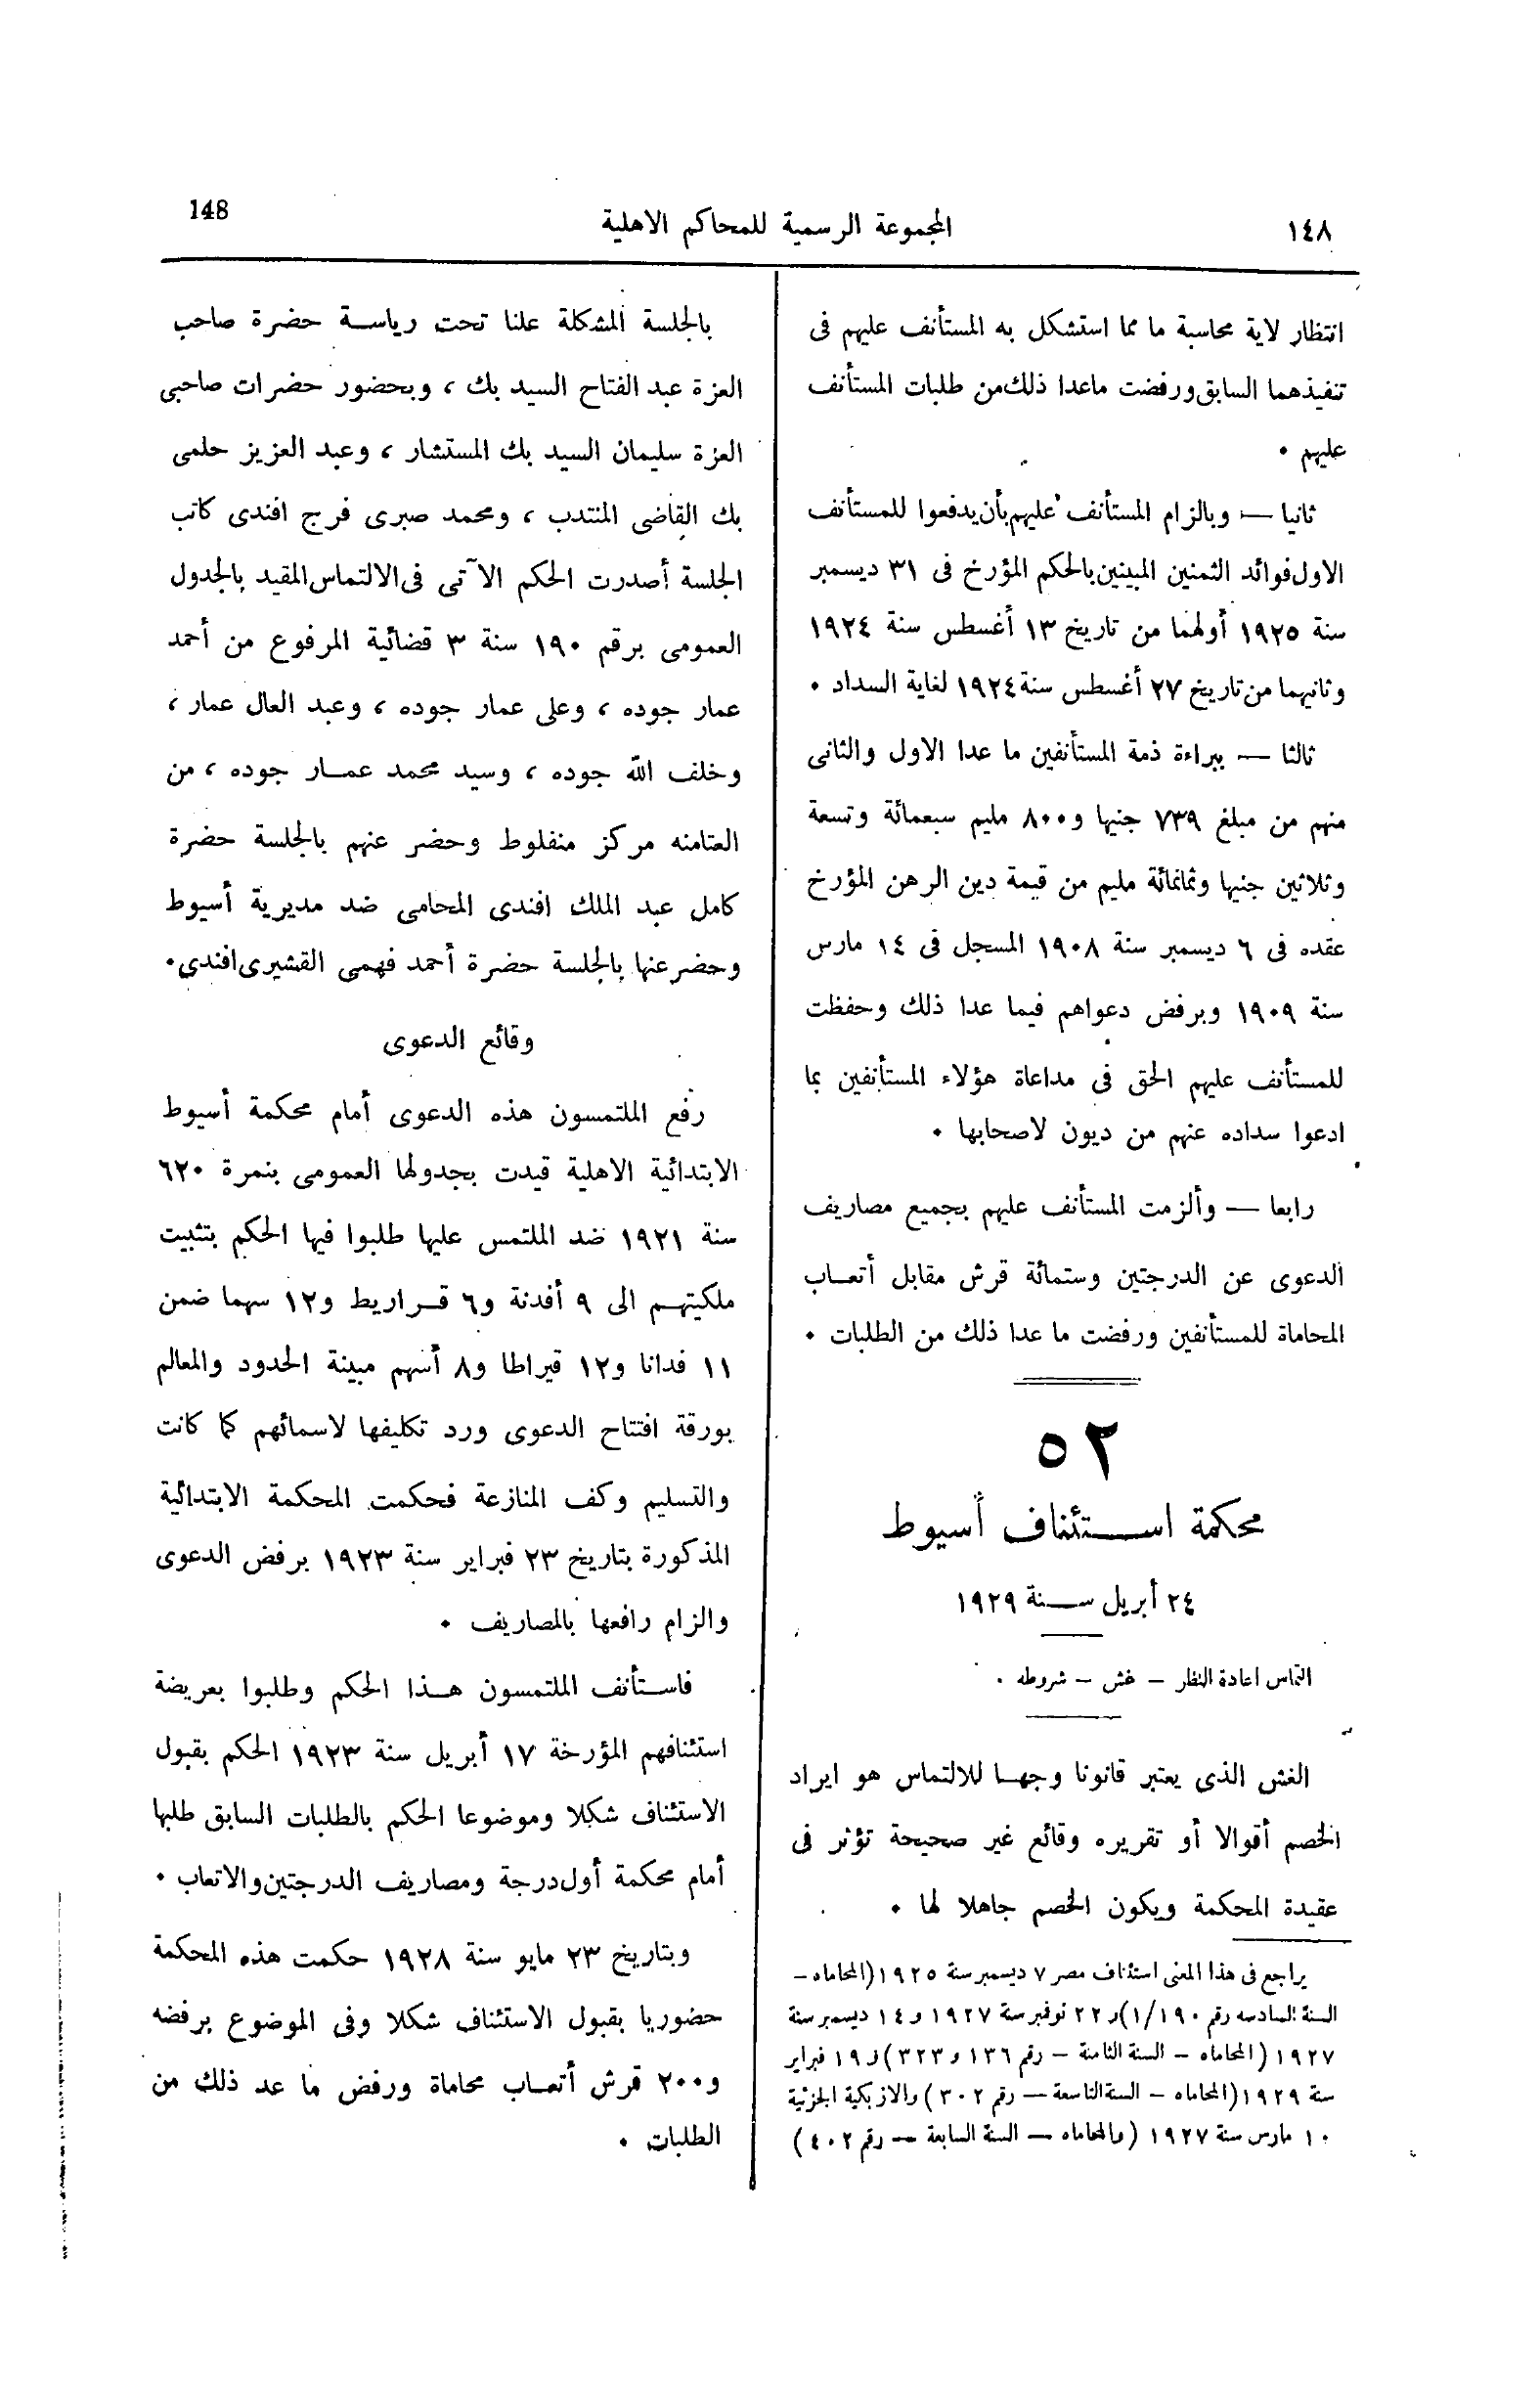 ١٤٨
المجموعة الرسمية للمحاكم الاهلية
148
انتظار لاية محاسبة ما مما استشكل به المستأنف عليهم فى
تنفيذهما السابق ورفضت ماعدا ذلك من طلبات المستأنف
عليهم .
ثانيا — وبالزام المستأنف عليهم بأن يدفعوا للمستأنف
الاول فوائد الثمنين المبينين بالحكم المؤرخ فى ٣١ ديسمبر
سنة ١٩٢٥ أولهما من تاريخ ١٣ أغسطس سنة ١٩٢٤
وثانيهما من تاريخ ٢٧ أغسطس سنة ١٩٢٤ لغاية السداد .
ثالثا — ببراءة ذمة المستأنفين ما عدا الاول والثانى
منهم من مبلغ ٧٣٩ جنيها و٨٠٠ مليم سبعمائة وتسعة
وثلاثين جنيها وثمانمائة مليم من قيمة دين الرهن المؤرخ
عقده فى ٦ ديسمبر سنة ١٩٠٨ المسجل فى ١٤ مارس
سنة ١٩٠٩ وبرفض دعواهم فيما عدا ذلك وحفظت
للمستأنف عليهم الحق فى مداعاة هؤلاء المستأنفين بما
ادعوا سداده عنهم من ديون لاصحابها .
رابعا — وألزمت المستأنف عليهم بجميع مصاريف
الدعوى عن الدرجتين وستمائة قرش مقابل أتعاب
المحاماة للمستأنفين ورفضت ما عدا ذلك من الطلبات .
٥٢
محكمة استئناف أسيوط
٢٤ أبريل سنة ١٩٢٩
التماس اعادة النظر — غش — شروطه .
الغش الذى يعتبر قانونا وجها للالتماس هو ايراد
الخصم أقوالا أو تقريره وقائع غير صحيحة تؤثر فى
عقيدة المحكمة ويكون الخصم جاهلا لها .
يراجع فى هذا المعنى استئناف مصر ٧ ديسمبر سنة ١٩٢٥ (المحاماه —
السنة السادسه رقم ١/١٩٠) و٢٢ نوفمبر سنة ١٩٢٧ و١٤ ديسمبر سنة
١٩٢٧ (المحاماه — السنة الثامنة — رقم ١٣٦ و ٣٢٣) و١٩ فبراير
سنة ١٩٢٩ (المحاماه — السنة التاسعة — رقم ٣٠٢) والازبكية الجزئية
١٠ مارس سنة ١٩٢٧ (والمحاماه — السنة السابعة — رقم ٤٠٢)
بالجلسة المشكلة علنا تحت رياسة حضرة صاحب
العزة عبد الفتاح السيد بك ، وبحضور حضرات صاحبى
العزة سليمان السيد بك المستشار ، وعبد العزيز حلمى
بك القاضى المنتدب ، ومحمد صبرى فرج افندى كاتب
الجلسة أصدرت الحكم الآتى فى الالتماس المقيد بالجدول
العمومى برقم ١٩٠ سنة ٣ قضائية المرفوع من أحمد
عمار جوده ، وعلى عمار جوده ، وعبد العال عمار ،
وخلف الله جوده ، وسيد محمد عمار جوده ، من
العتامنه مركز منفلوط وحضر عنهم بالجلسة حضرة
كامل عبد الملك افندى المحامى ضد مديرية أسيوط
وحضر عنها بالجلسة حضرة أحمد فهمى القشيرى افندى .
وقائع الدعوى
رفع الملتمسون هذه الدعوى أمام محكمة أسيوط
الابتدائية الاهلية قيدت بجدولها العمومى بنمرة ٦٢٠
سنة ١٩٢١ ضد الملتمس عليها طلبوا فيها الحكم بتثبيت
ملكيتهم الى ٩ أفدنة و٦ قراريط و١٢ سهما ضمن
١١ فدانا و١٢ قيراطا و٨ أسهم مبينة الحدود والمعالم
بورقة افتتاح الدعوى ورد تكليفها لاسمائهم كما كانت
والتسليم وكف المنازعة فحكمت المحكمة الابتدائية
المذكورة بتاريخ ٢٣ فبراير سنة ١٩٢٣ برفض الدعوى
والزام رافعها بالمصاريف .
فاستأنف الملتمسون هذا الحكم وطلبوا بعريضة
استئنافهم المؤرخة ١٧ أبريل سنة ١٩٢٣ الحكم بقبول
الاستئناف شكلا وموضوعا الحكم بالطلبات السابق طلبها
أمام محكمة أول درجة ومصاريف الدرجتين والاتعاب .
وبتاريخ ٢٣ مايو سنة ١٩٢٨ حكمت هذه المحكمة
حضوريا بقبول الاستئناف شكلا وفى الموضوع برفضه
و٢٠٠ قرش أتعاب محاماة ورفض ما عد ذلك من
الطلبات .